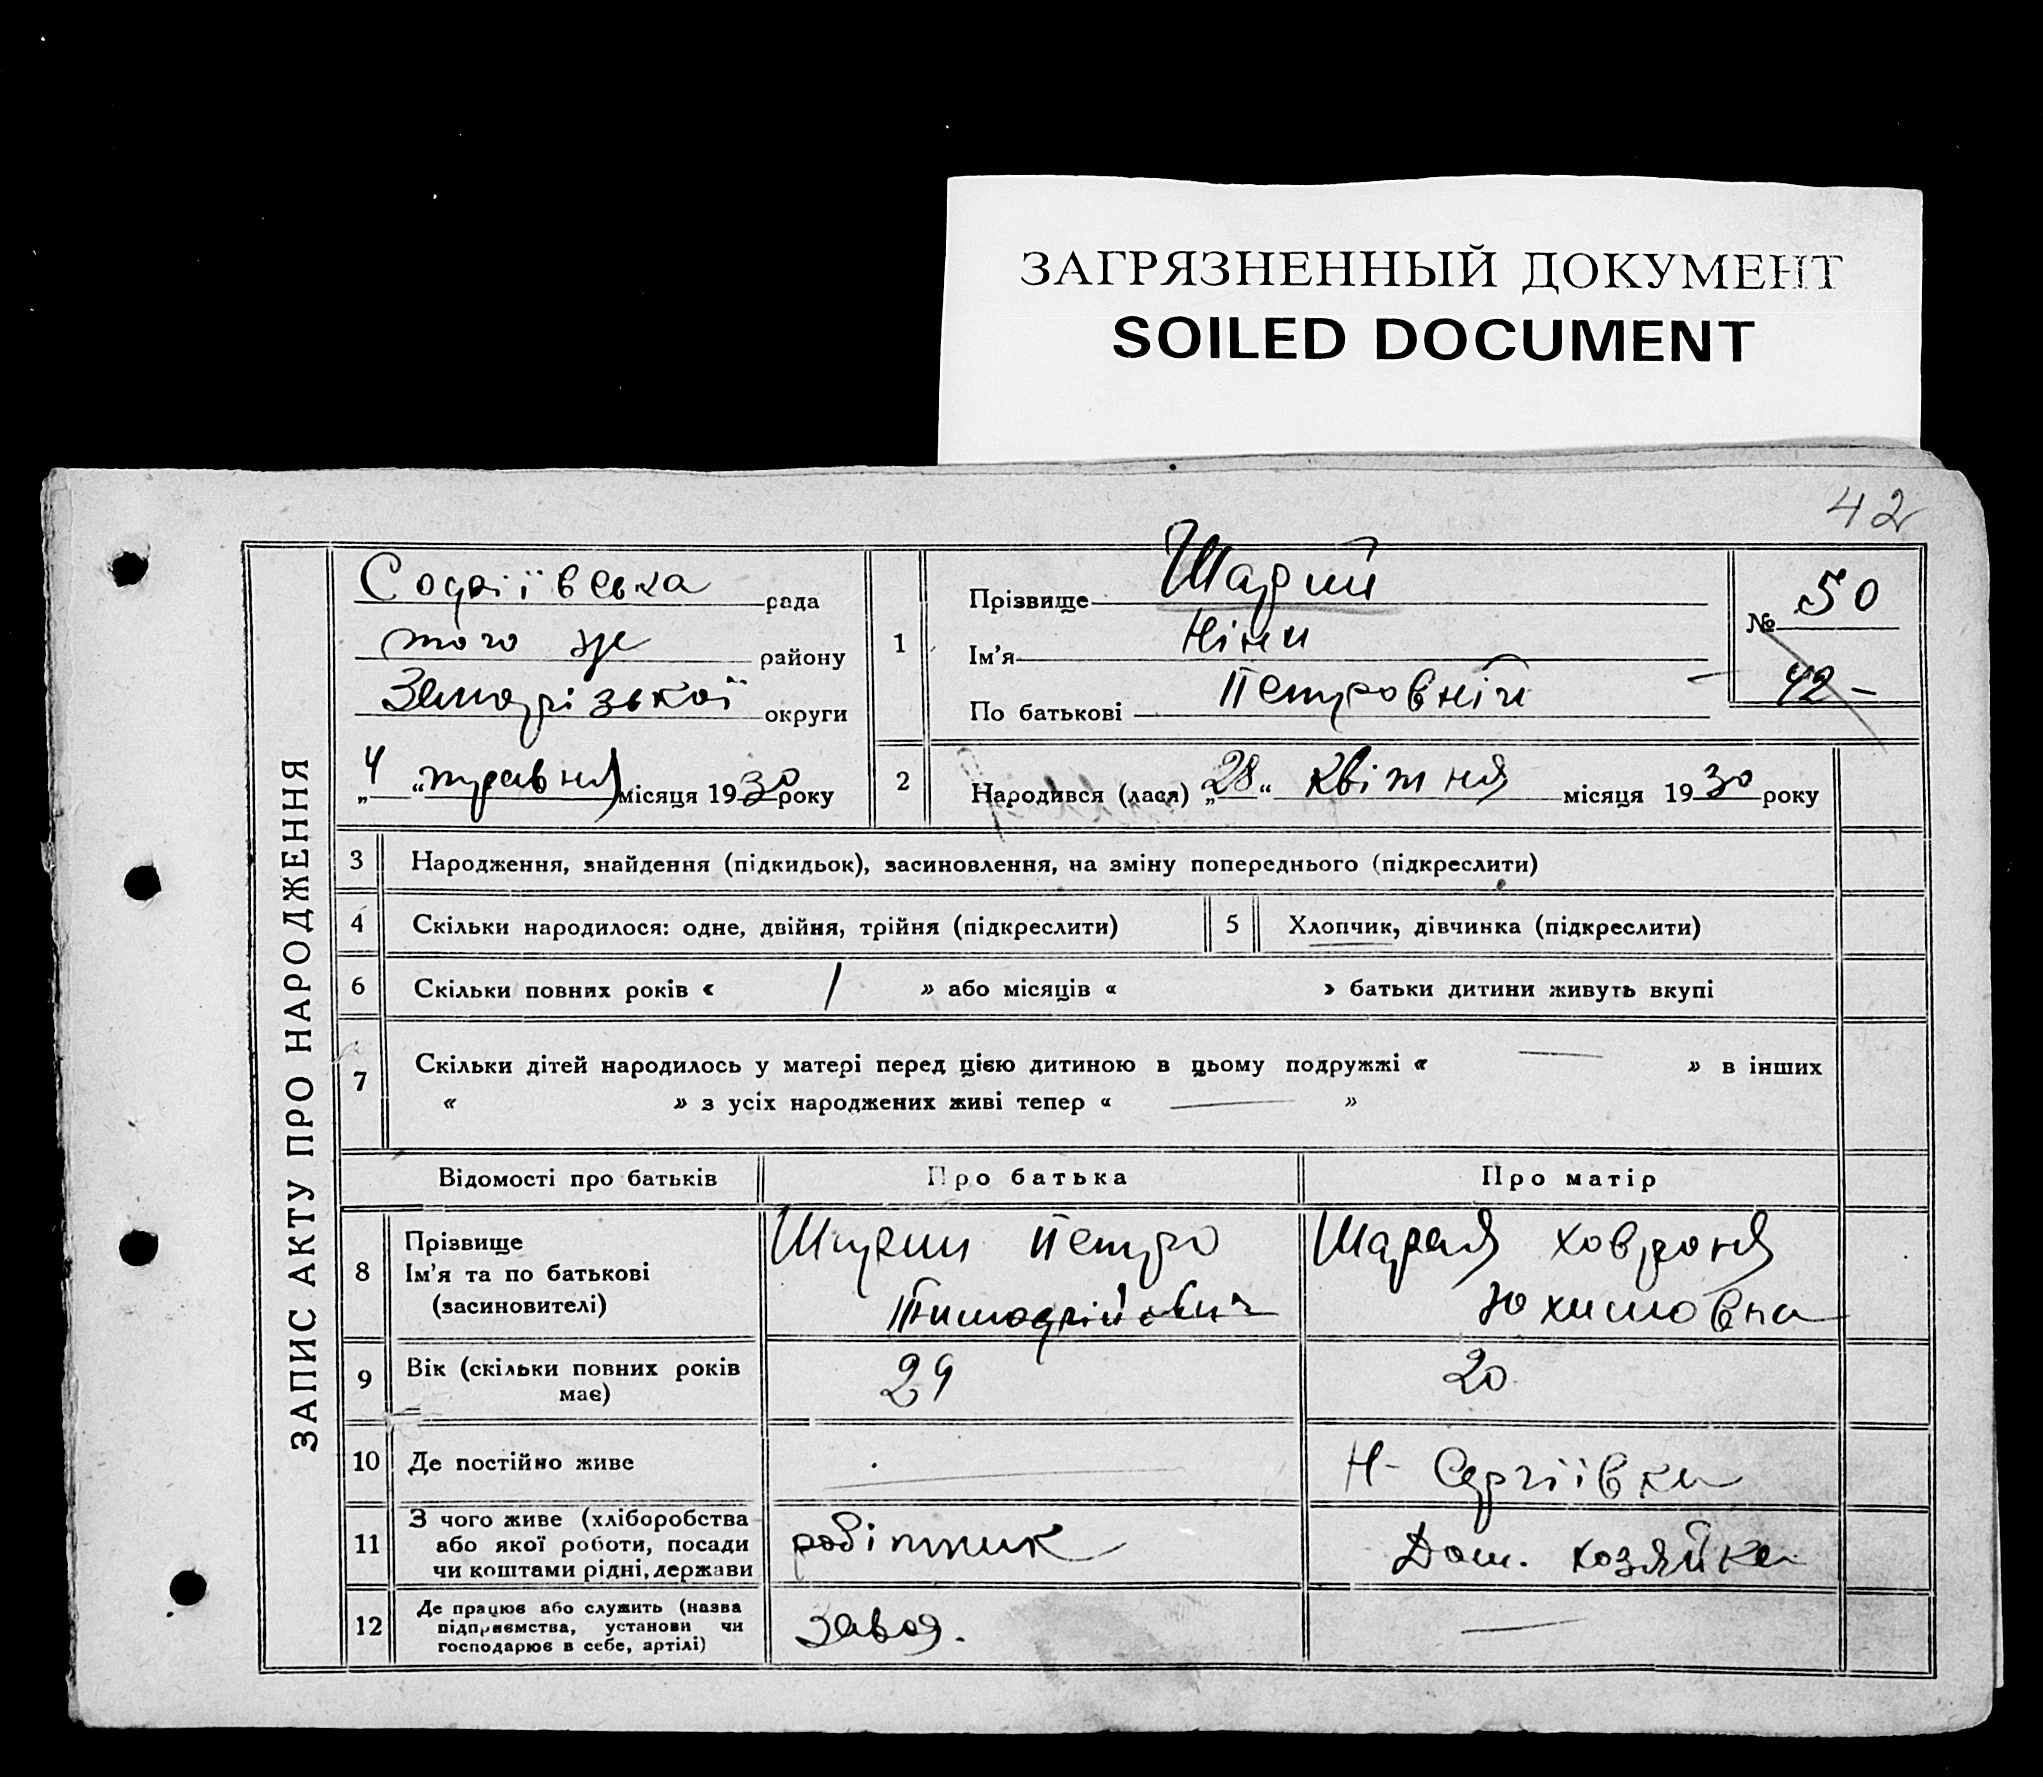 ЗАГРЯЗНЕННЫЙ ДОКУМЕНТ
SOILED DOCUMENT
42
ЗАПИС АКТУ ПРО НАРОДЖЕННЯ
Софіївська рада
того же району
Запорізької округи
„4“ травня місяця 1930 року
1
Прізвище Шадрий
Ім'я Ніни
По батькові Петровній
№ 50
42 –
2
Народився (лася) „28“ квітня місяця 1930 року
3 Народження, знайдення (підкидьок), засиновлення, на зміну попереднього (підкреслити)
4 Скільки народилося: одне, двійня, трійня (підкреслити) 5 Хлопчик, дівчинка (підкреслити)
6 Скільки повних років « 1 » або місяців « » батьки дитини живуть вкупі
7 Скільки дітей народилось у матері перед цією дитиною в цьому подружжі « — » в інших
« » з усіх народжених живі тепер « — »
Відомості про батьків Про батька Про матір
8 Прізвище
Ім'я та по батькові
(засиновителі)
Петро
Тимофійович
Ховроня
Юхимовна
9 Вік (скільки повних років має) 29 20
10 Де постійно живе — Н- Сергіївка
11 З чого живе (хліборобства
або якої роботи, посади
чи коштами рідні, держави
робітник Дом. хозяйка
12 Де працює або служить (назва
підприємства, установи чи
господарює в себе, артілі)
завод. —